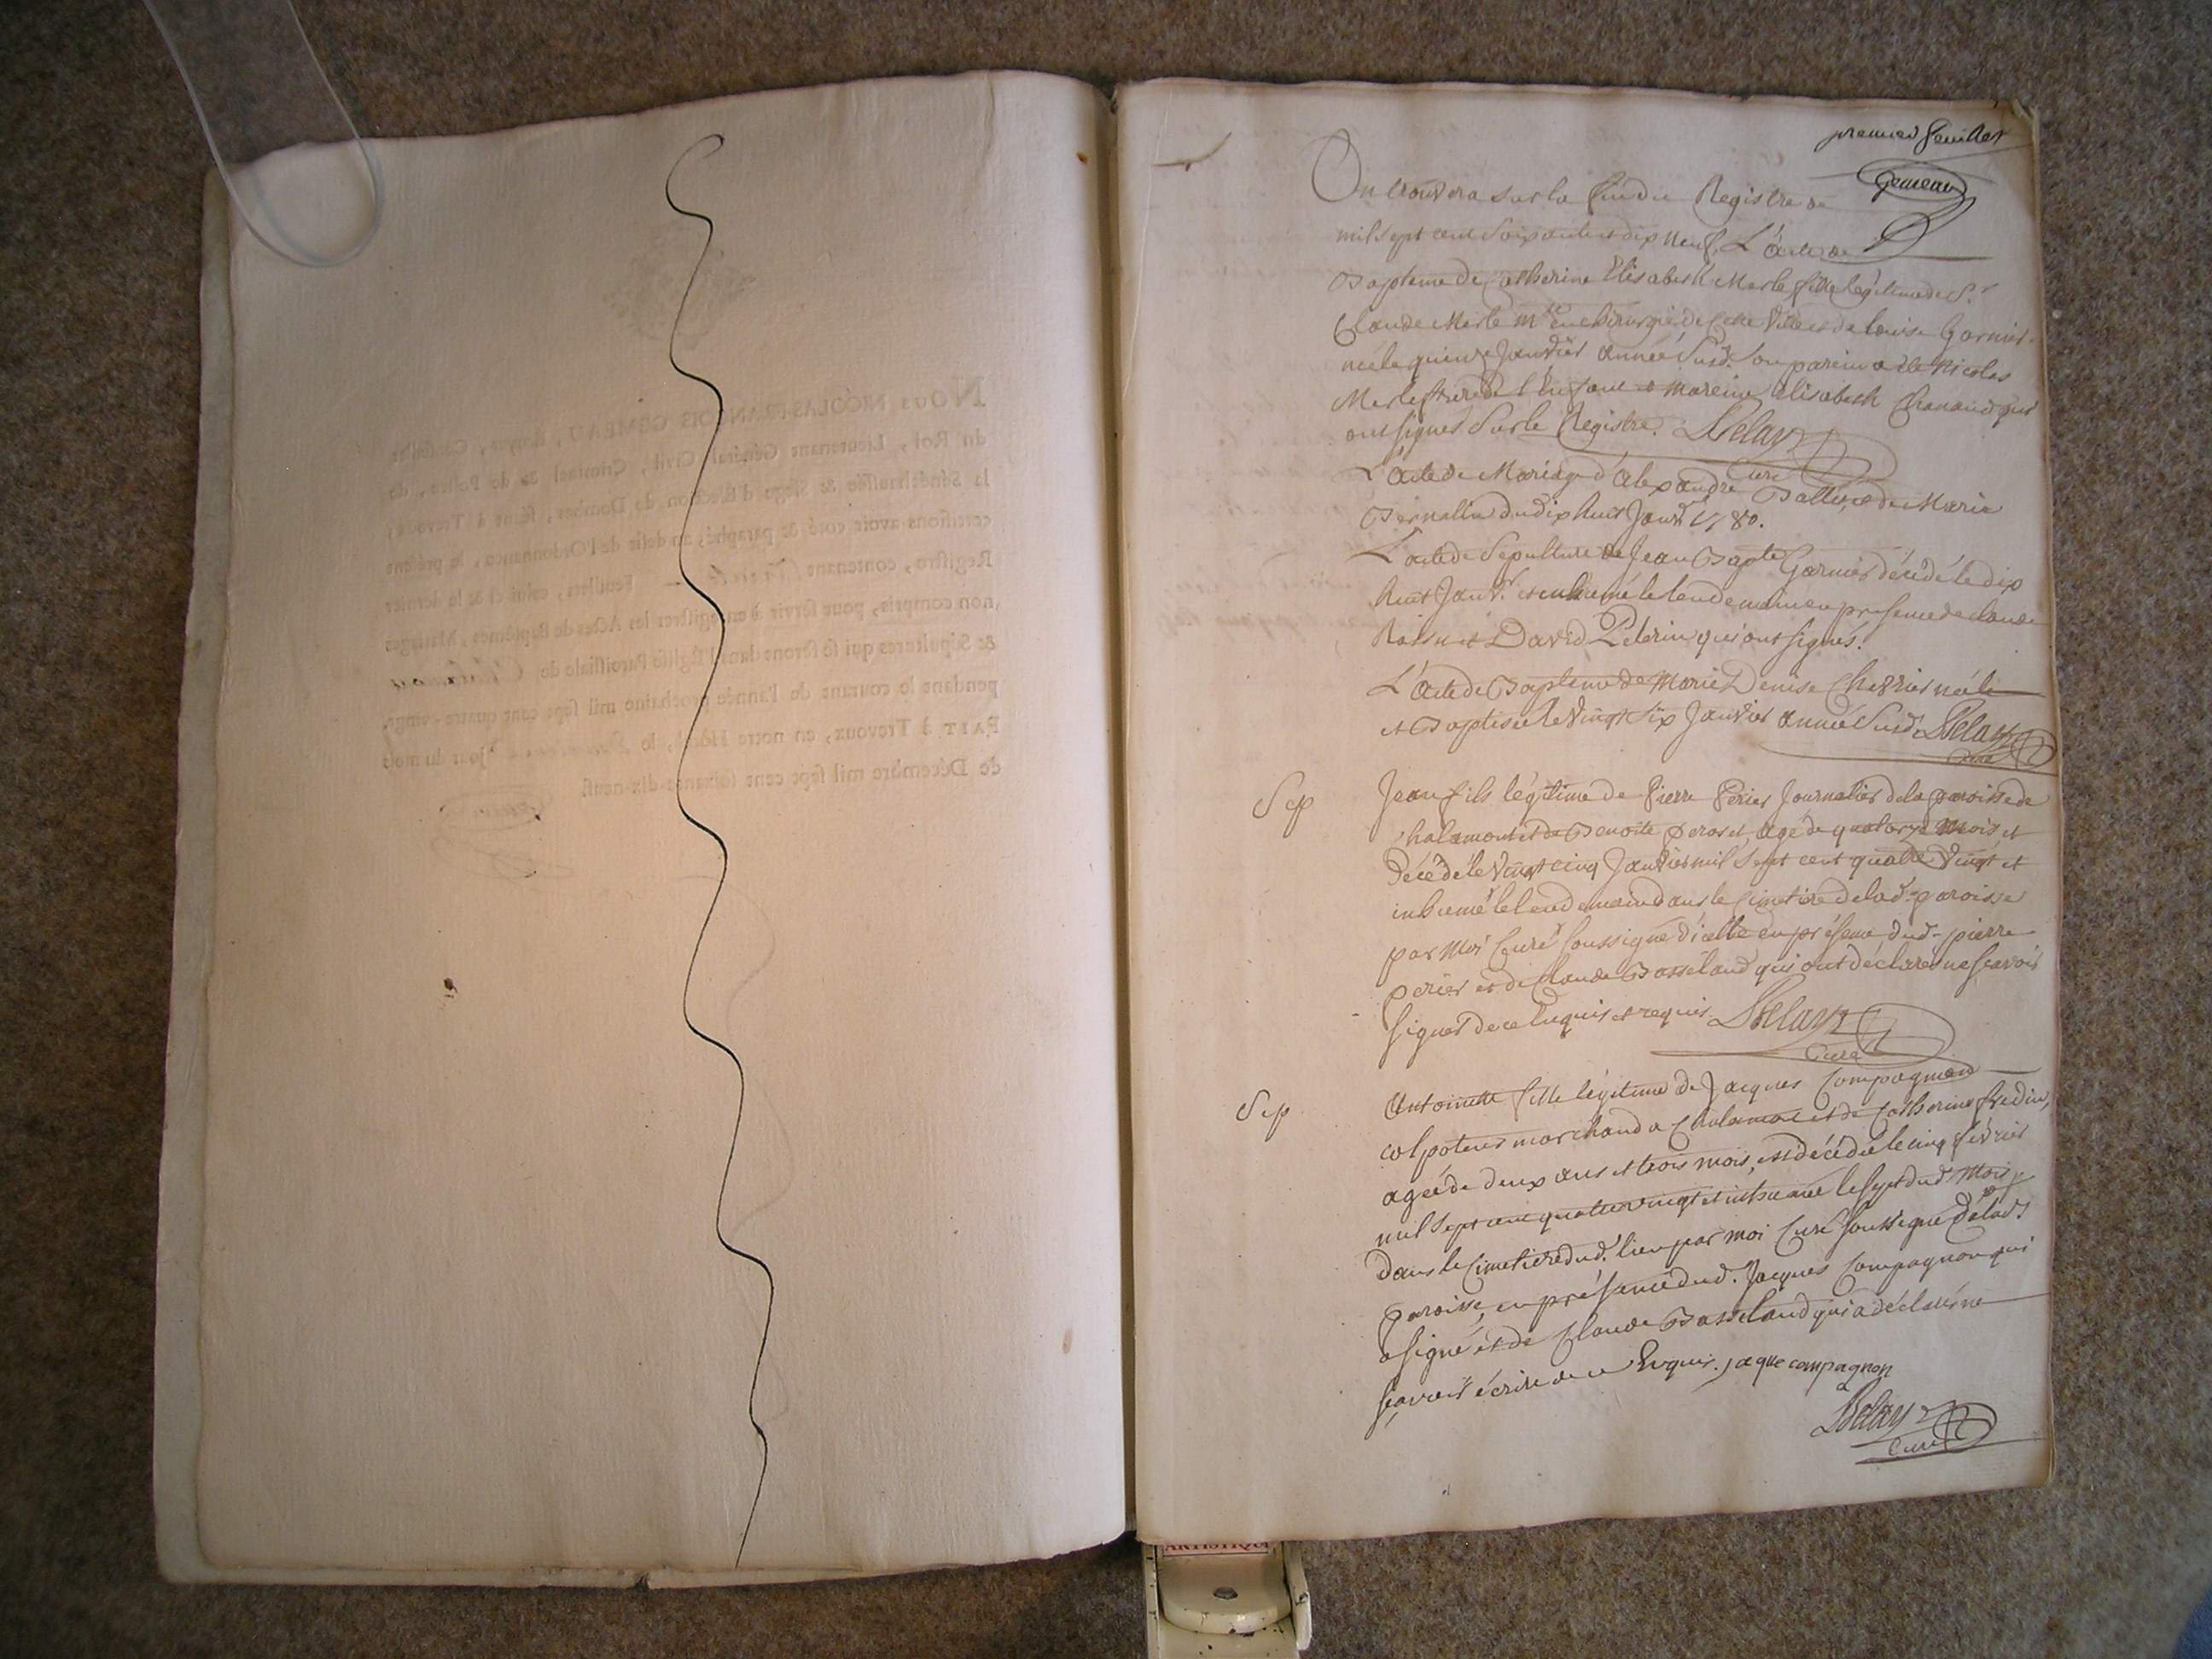 premier feuillet
Gemeau
On trouvera sur la fin du Registre de
mil sept cent soixante et dix neuf. L'acte de
Bapteme de Catherine Elisabeth Merle fille légitime de Sr
Claude Merle mtre en chirurgie de cette ville et de Louise Garnier
née le quinze Janvier année susd. son parein a été Nicolas
Merle frere de l'enfant et mareine Elisabeth Chanaud qui
ont signés sur le Registre. Delay
Curé
L'acte de Mariage d'Alexandre et de Marie
du dix huit Janvr 1780.
L'acte de Sepulture de Jean Bapte Garnier décédé le dix
huit Janvr. et inhumé le lendemain en presence de claude
et David Pelerin qui ont signés.
L'acte de Bapteme de Marie Denise Chevrier née le
et Baptisée le vingt six Janvier année susd. Delay
Curé
Sep
Jean fils légitime de Pierre Perier Journalier de la paroisse de
Chalamont et de Benoite agé de quatorze mois est
décédé le vingt cinq Janvier mil sept cent quatre vingt et
inhumé le lendemain dans le cimetiere de lad. paroisse
par moi Curé soussigné d'icelle en présence dud. pierre
perier et de Claude Basseland qui ont déclarés ne scavoir
signer de ce enquis et requis. Delay
Curé
Sep
Antoinette fille légitime de Jacques Compagnon
colpoteur marchand a Chalamont et de Catherine fredin,
agée de deux ans et trois mois, est décédée le cinq février
mil sept cent quatre vingt et inhumée le sept dud. mois
dans le Cimetiere dud. lieu par moi Curé soussigné de lad.
paroisse, en présence dud. Jacques Compagnon qui
a signé et de Claude Basseland qui a déclaré ne
scavoir écrire de ce enquis. jaque compagnon
Delay
Curé
NOUS NICOLAS-FRANÇOIS GEMEAU, Ecuyer, Conseiller
du Roi, Lieutenant Général Civil, Criminel & de Police, de
la Sénéchaussée & Siége d'Election de Dombes, séant à Trevoux,
certifions avoir coté & paraphé, au desir de l'Ordonnance, le présent
Registre, contenant Feuillets, celui-ci & le dernier
non compris, pour servir à enregistrer les Actes de Baptêmes, Mariages
& Sépultures qui se feront dans l'Eglise Paroissiale de Chalamont
pendant le courant de l'année prochaine mil sept cent quatre-vingt.
FAIT à Trevoux, en notre Hôtel, le jour du mois
de Décembre mil sept cent soixante-dix-neuf.
ARTISTIQUE